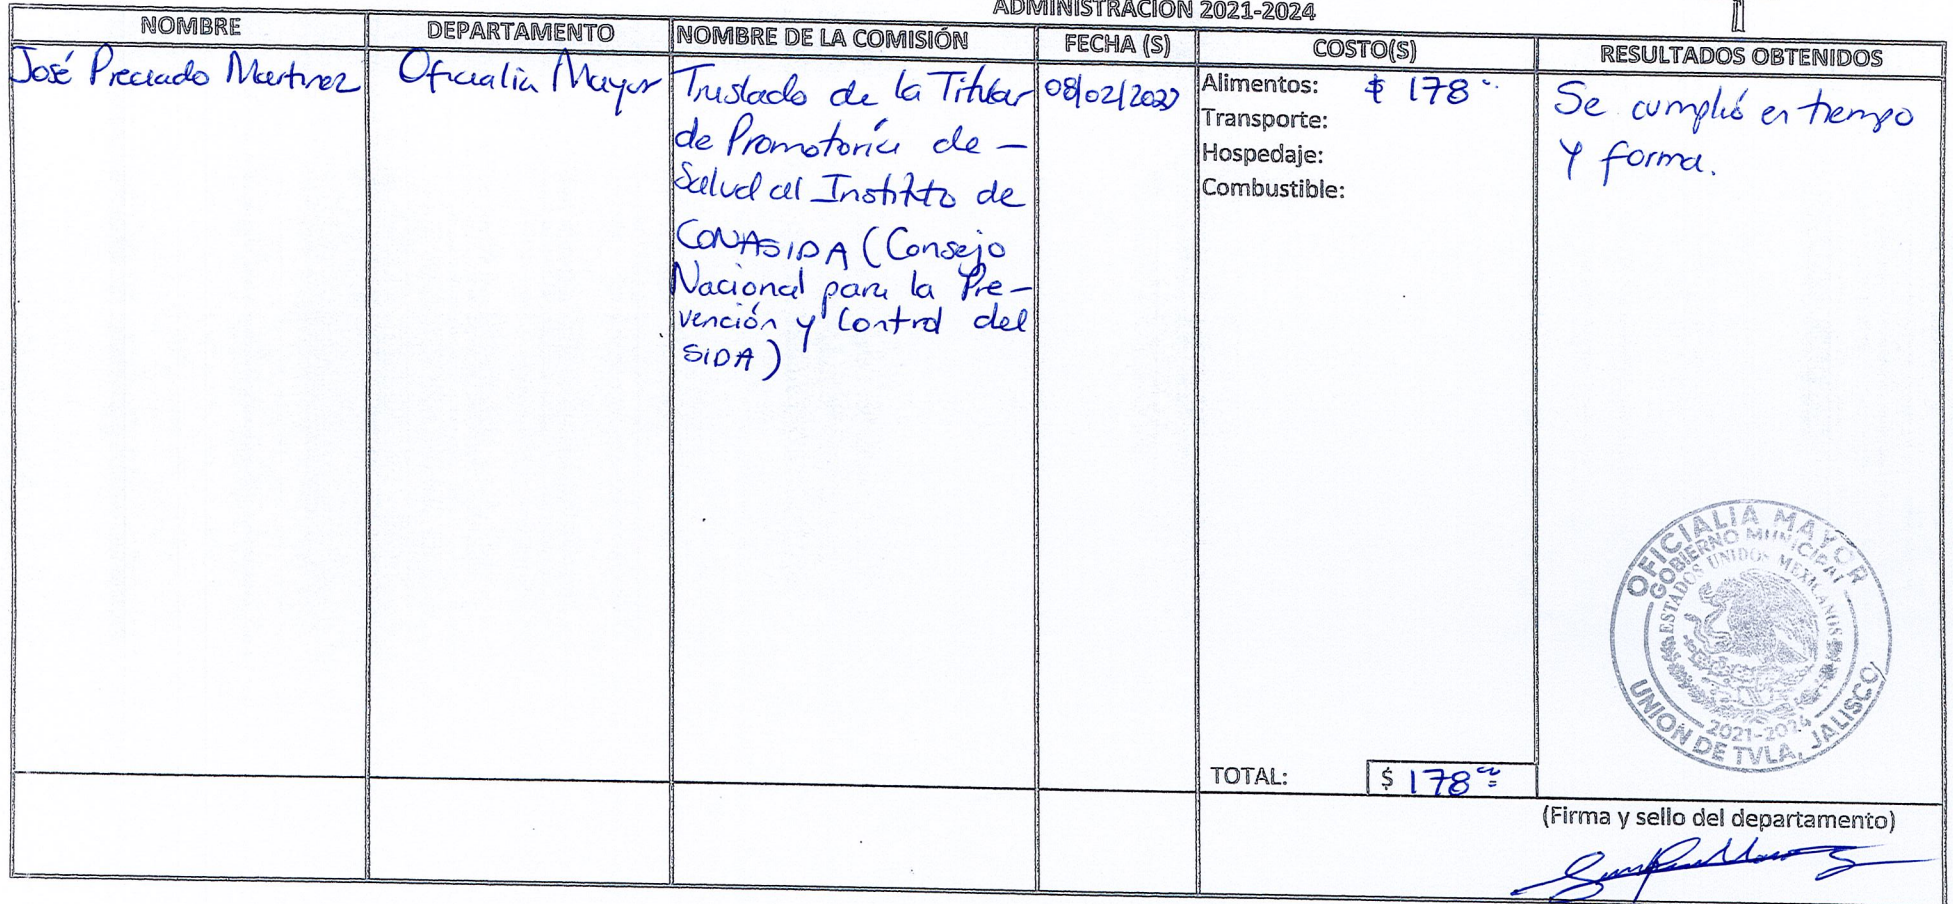 ADMINISTRACIÓN 2021-2024
NOMBRE
DEPARTAMENTO
NOMBRE DE LA COMISIÓN
FECHA (S)
COSTO(S)
RESULTADOS OBTENIDOS
José Preciado Martinez
Oficialia Mayor
Traslado de la Titular
de Promotoria de —
Salud al Instituto de
CONASIDA (Consejo
Nacional para la Pre-
vención y Control del
SIDA)
08/02/2022
Alimentos: $ 178
Transporte:
Hospedaje:
Combustible:
Se cumplió en tiempo
y forma.
OFICIALIA MAYOR
GOBIERNO MUNICIPAL
ESTADOS UNIDOS MEXICANOS
2021-2024
UNIÓN DE TULA, JALISCO
TOTAL: $ 178
(Firma y sello del departamento)